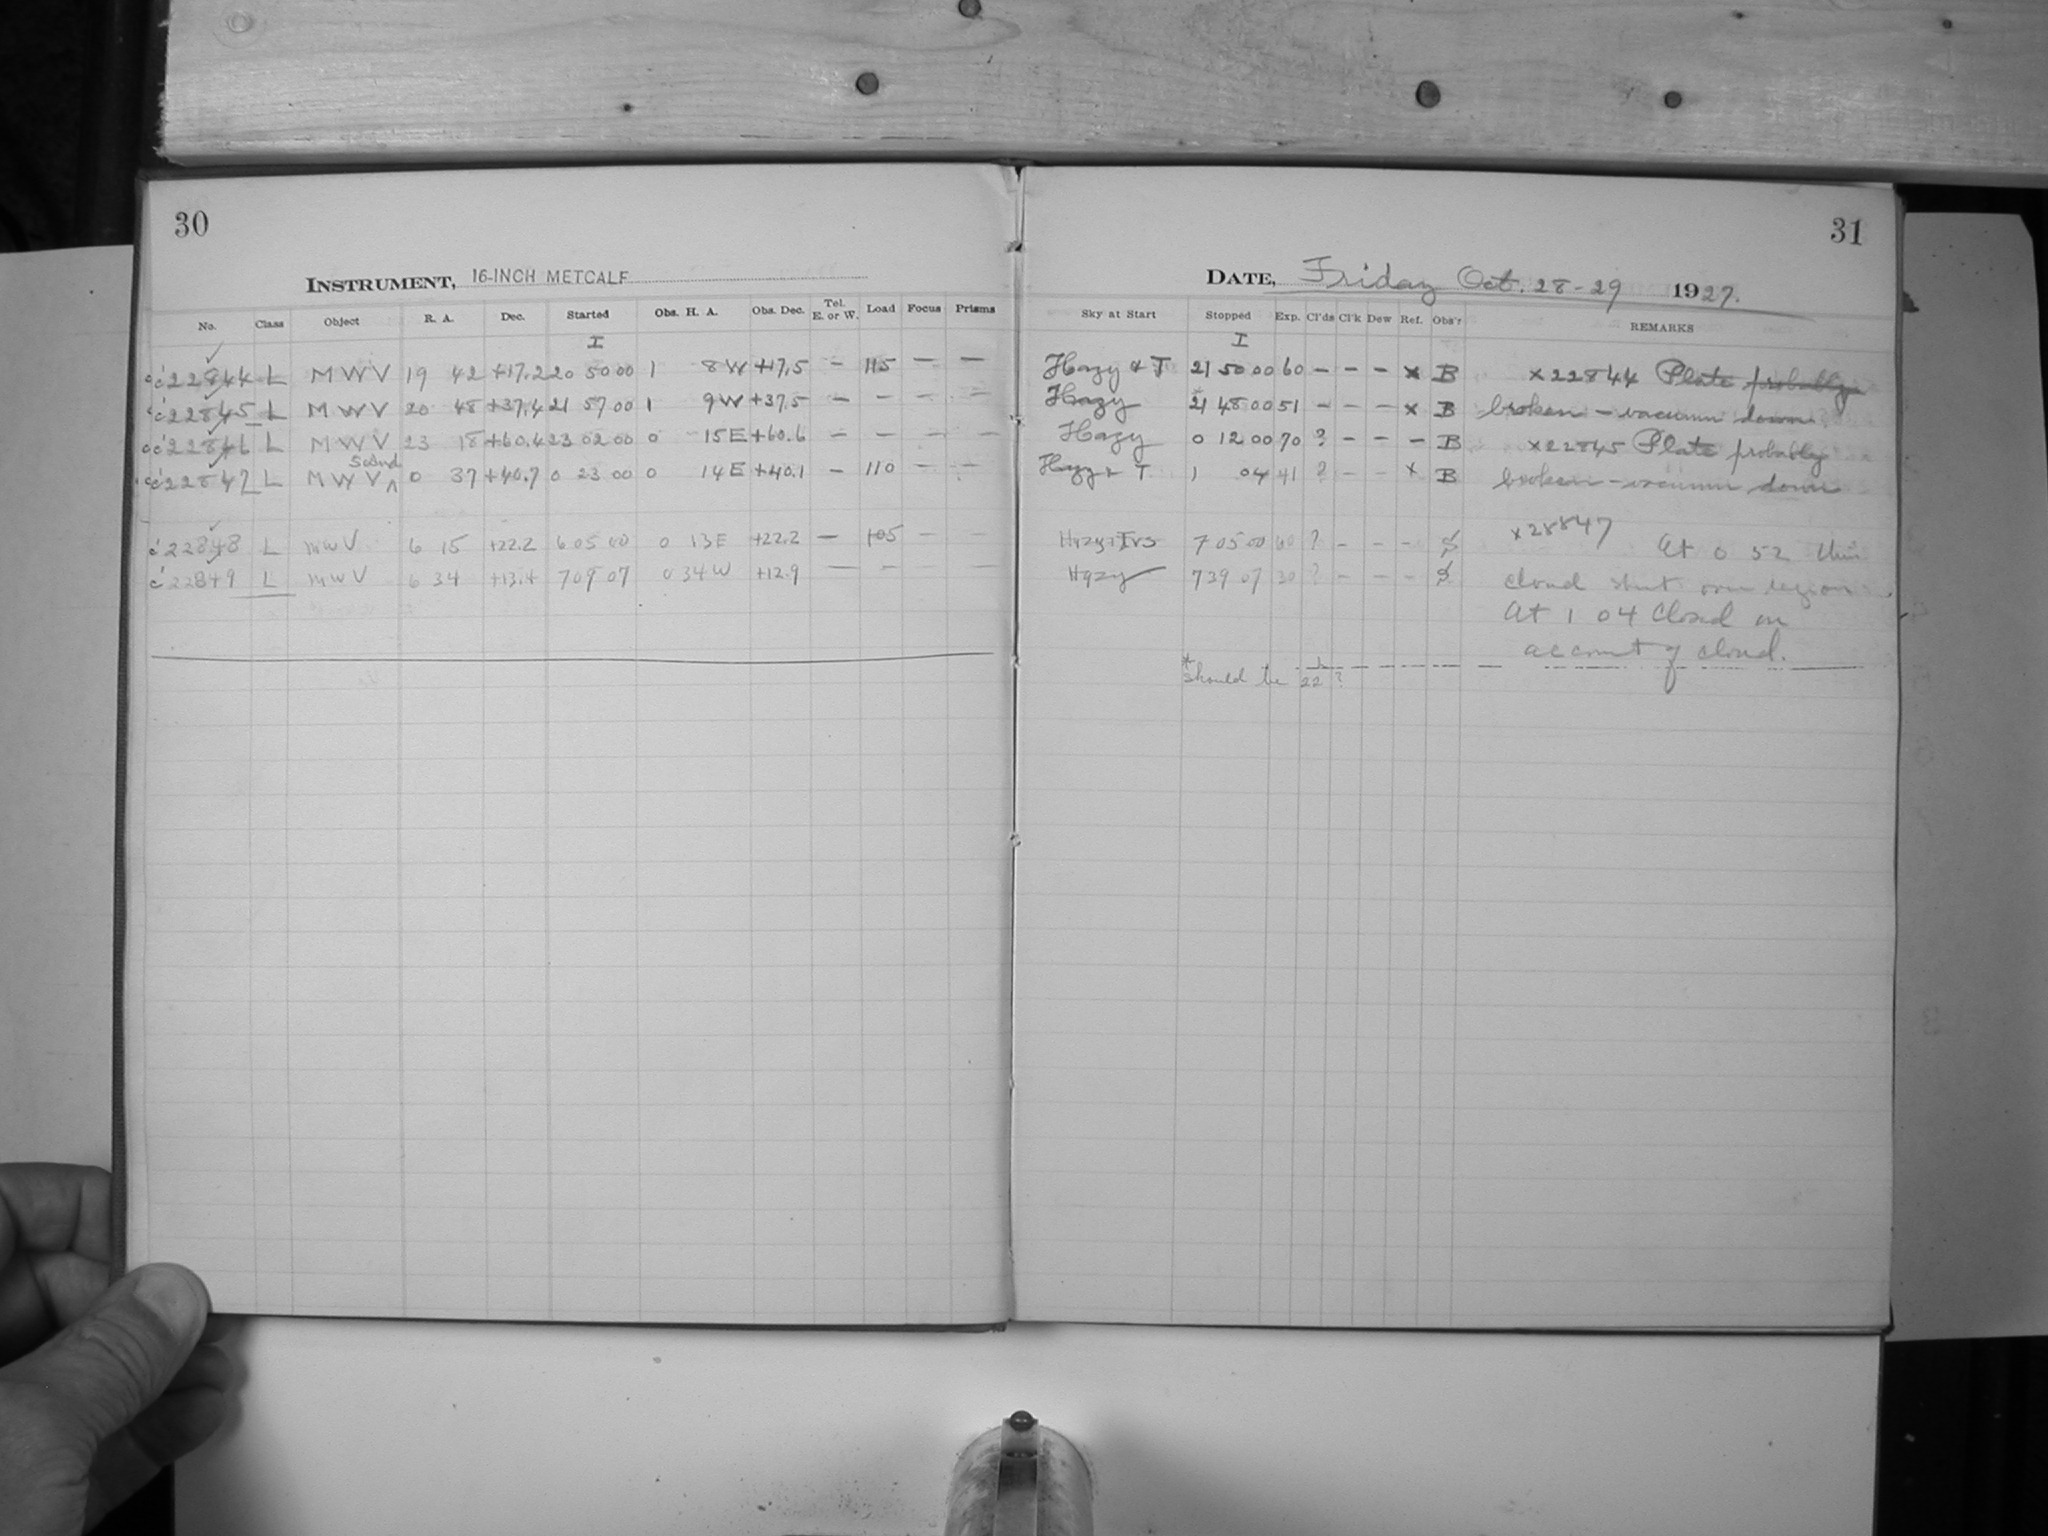 30
INSTRUMENT, 16-INCH METCALF
No. Class Object R. A. Dec. Started Obs. H. A. Obs. Dec. Tel. E. or W. Load Focus Prisms
I
22844 L MWV 19 42 +17.2 20 50 00 1 8W +17.5 – 115 – –
22845 L MWV 20 48 +37.4 21 57 00 1 9W +37.5 – – – –
22846 L MWV 23 18 +60.4 23 02 00 0 15E +60.6 – – – –
22847 L MWV 0 37 +40.7 0 23 00 0 14E +40.1 – 110 – –
22848 L MWV 6 15 +22.2 6 05 00 0 13E +22.2 – 105 – –
22849 L MWV 6 34 +13.4 7 09 07 0 34W +12.9 – – –
31
DATE, Friday Oct. 28-29 1927.
Sky at Start Stopped Exp. Cl'ds Cl'k Dew Ref. Obs'r REMARKS
I
Hazy & T 21 50 00 60 – – – x B x22844 Plate probably
Hazy *21 48 00 51 – – – x B broken – vacuum down
Hazy 0 12 00 70 ? – – – B x22845 Plate probably
Hazy & T 1 04 41 ? – – x B broken – vacuum down
7 05 00 60 ? – – – x28847 At 0 52 thin
Hazy 7 39 07 30 ? – – – cloud shut over region
At 1 04 Closed on
account of cloud.
*should be 22h?